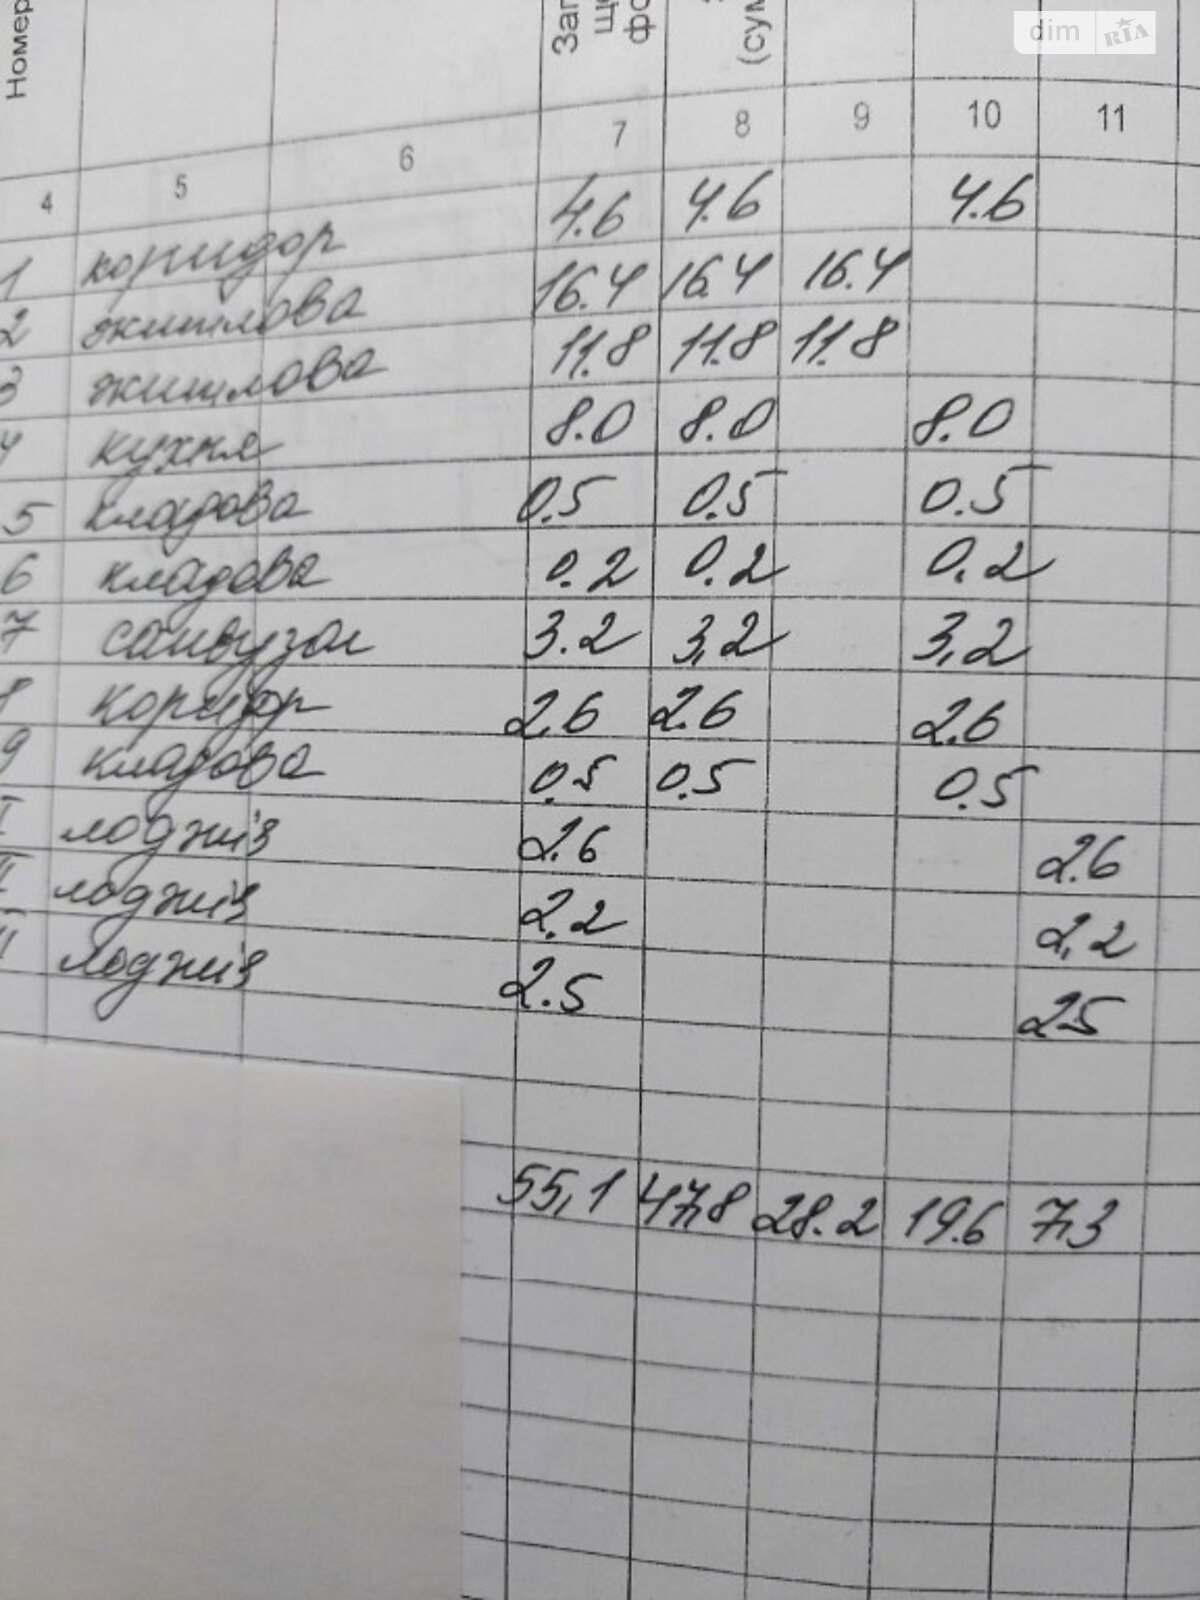 dim RIA
Номер
Заг
ще
фо
(сум
4 5 6 7 8 9 10 11
1 коридор 4.6 4.6 4.6
2 житлова 16.4 16.4 16.4
3 житлова 11.8 11.8 11.8
4 кухня 8.0 8.0 8.0
5 кладова 0.5 0.5 0.5
6 кладова 0.2 0.2 0.2
7 санвузол 3.2 3,2 3,2
8 коридор 2.6 2.6 2.6
9 кладова 0.5 0.5 0.5
I лоджія 2.6 2.6
II лоджія 2.2 2,2
II лоджія 2.5 25
55,1 47,8 28.2 19.6 7,3